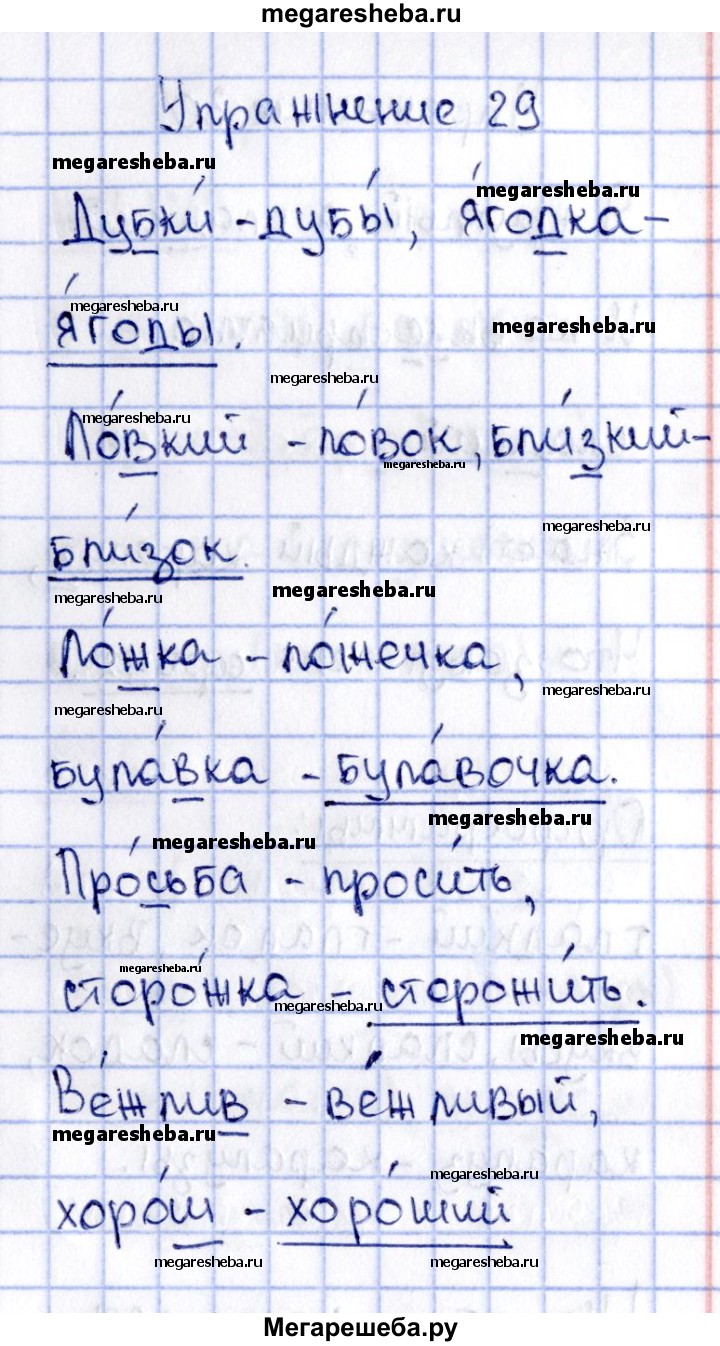 megaresheba.ru
Упражнение 29
megaresheba.ru
megaresheba.ru
Дубки́ - дубы́, я́годка -
megaresheba.ru
я́годы.
megaresheba.ru
megaresheba.ru
megaresheba.ru
Ло́вкий - ло́вок, бли́зкий -
megaresheba.ru
megaresheba.ru
бли́зок.
megaresheba.ru
megaresheba.ru
Ло́жка - ло́жечка,
megaresheba.ru
megaresheba.ru
була́вка - була́вочка.
megaresheba.ru
megaresheba.ru
Про́сьба - проси́ть,
megaresheba.ru
сторо́жка - сторожи́ть.
megaresheba.ru
megaresheba.ru
Ве́жлив - ве́жливый,
megaresheba.ru
megaresheba.ru
хоро́ш - хоро́ший
megaresheba.ru
megaresheba.ru
Мегарешеба.ру